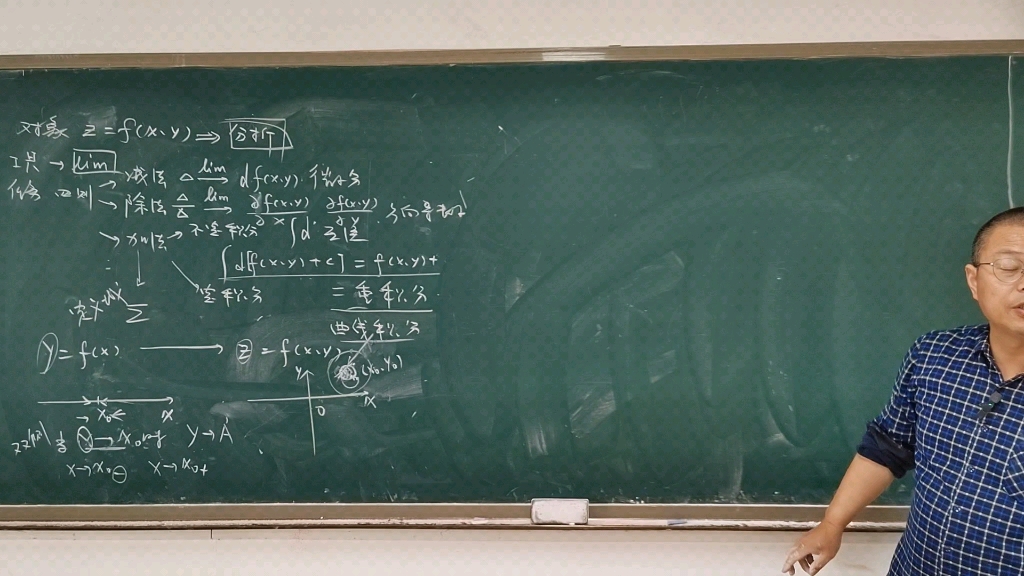 对象 z = f(x,y) ⇒ 分析
工具 → lim
任务 → 减法 Δ lim→ df(x,y) 微分
→ 除法 Δ/Δ lim→ ∂f(x,y)/∂x ∂f(x,y)/∂y 方向导
→ 加法 → 不定积分 ∫d
∫d[f(x,y)+c] = f(x,y)+
定积分 二重积分
Σ
曲线积分
y = f(x) → z = f(x,y)
y (x₀,y₀)
0 x
→ x₀ ← x
当 x → x₀ 时 y → A
x → x₀₋ x → x₀₊